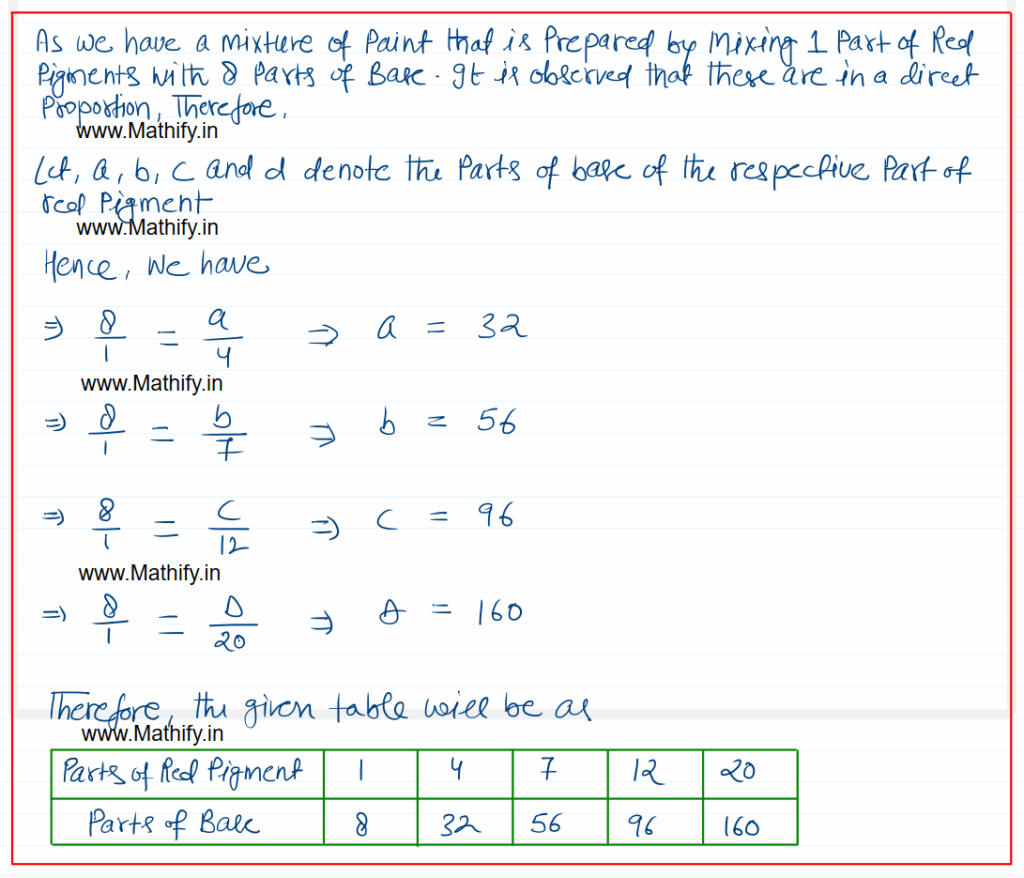 As we have a mixture of Paint that is Prepared by Mixing 1 Part of Red
Pigments with 8 Parts of Base. It is observed that these are in a direct
Proportion, Therefore,
www.Mathify.in
Let, a, b, c and d denote the Parts of base of the respective Part of
red Pigment
www.Mathify.in
Hence, We have
⇒ 8/1 = a/4 ⇒ a = 32
www.Mathify.in
⇒ 8/1 = b/7 ⇒ b = 56
⇒ 8/1 = C/12 ⇒ C = 96
www.Mathify.in
⇒ 8/1 = D/20 ⇒ D = 160
Therefore, the given table will be as
www.Mathify.in
Parts of Red Pigment 1 4 7 12 20
Parts of Base 8 32 56 96 160